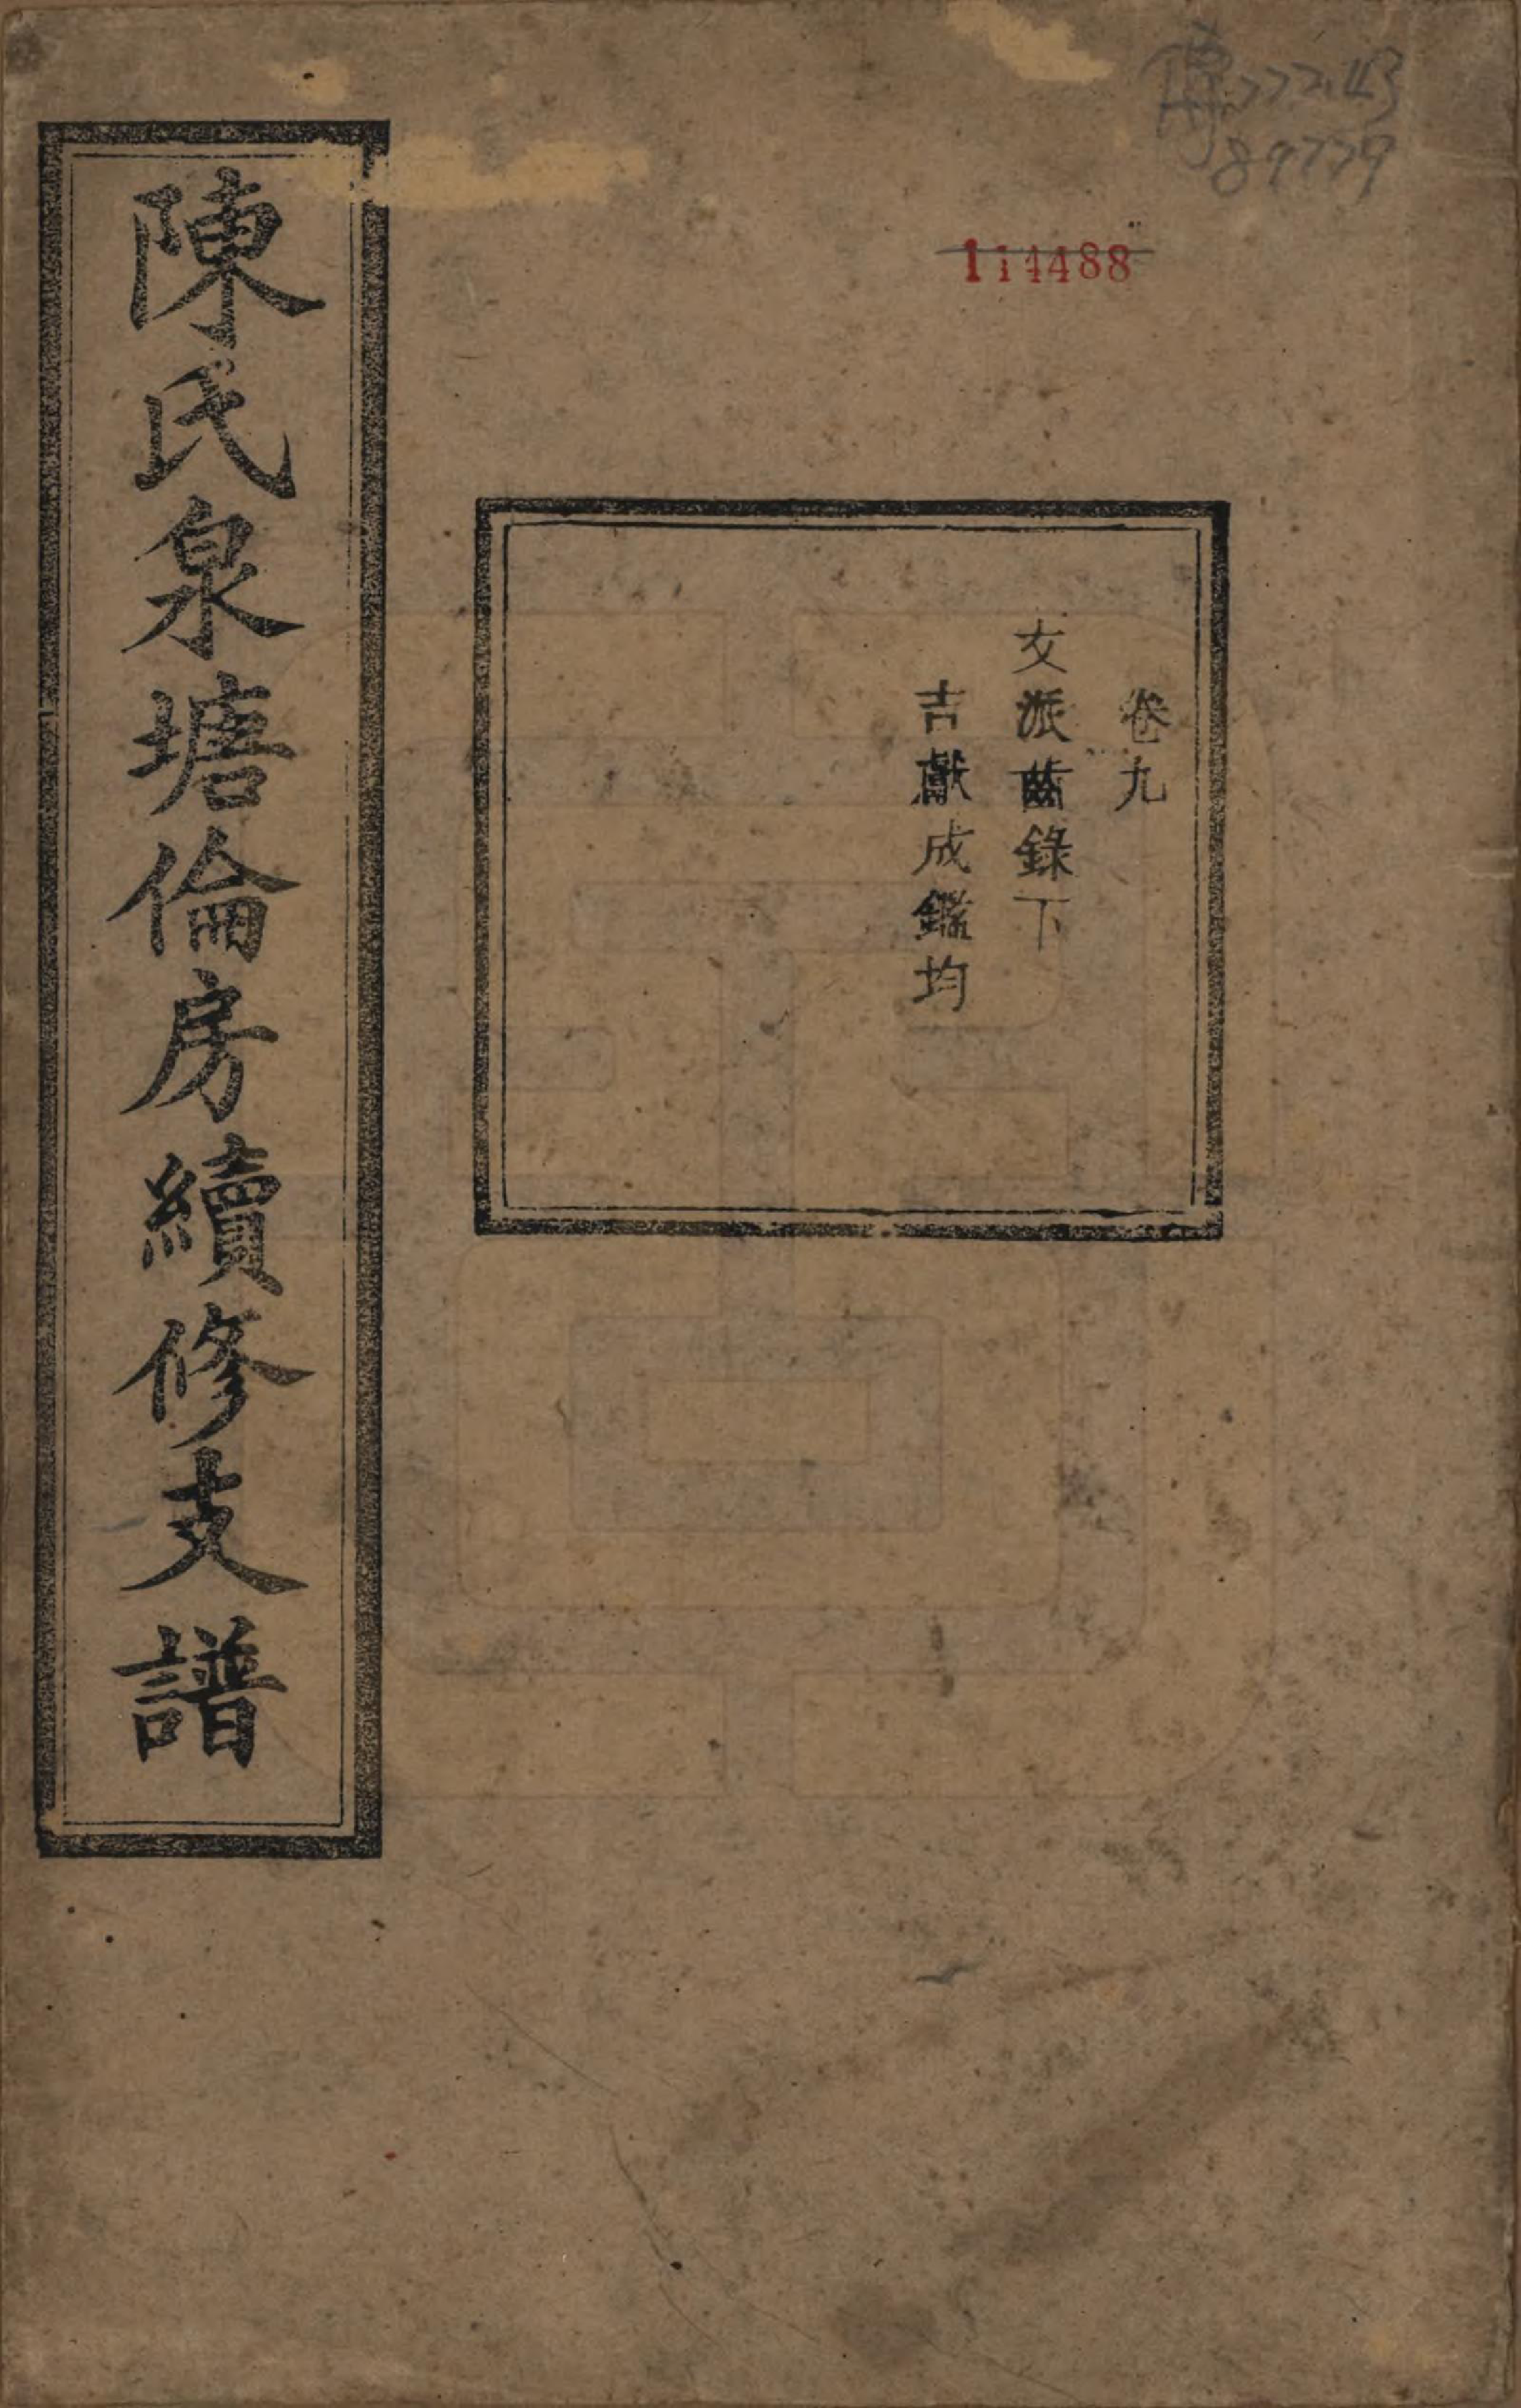 傳772.43
89779
114488
卷九
文派齒錄下
吉獻成鑑均
陳氏泉塘倫房續修支譜